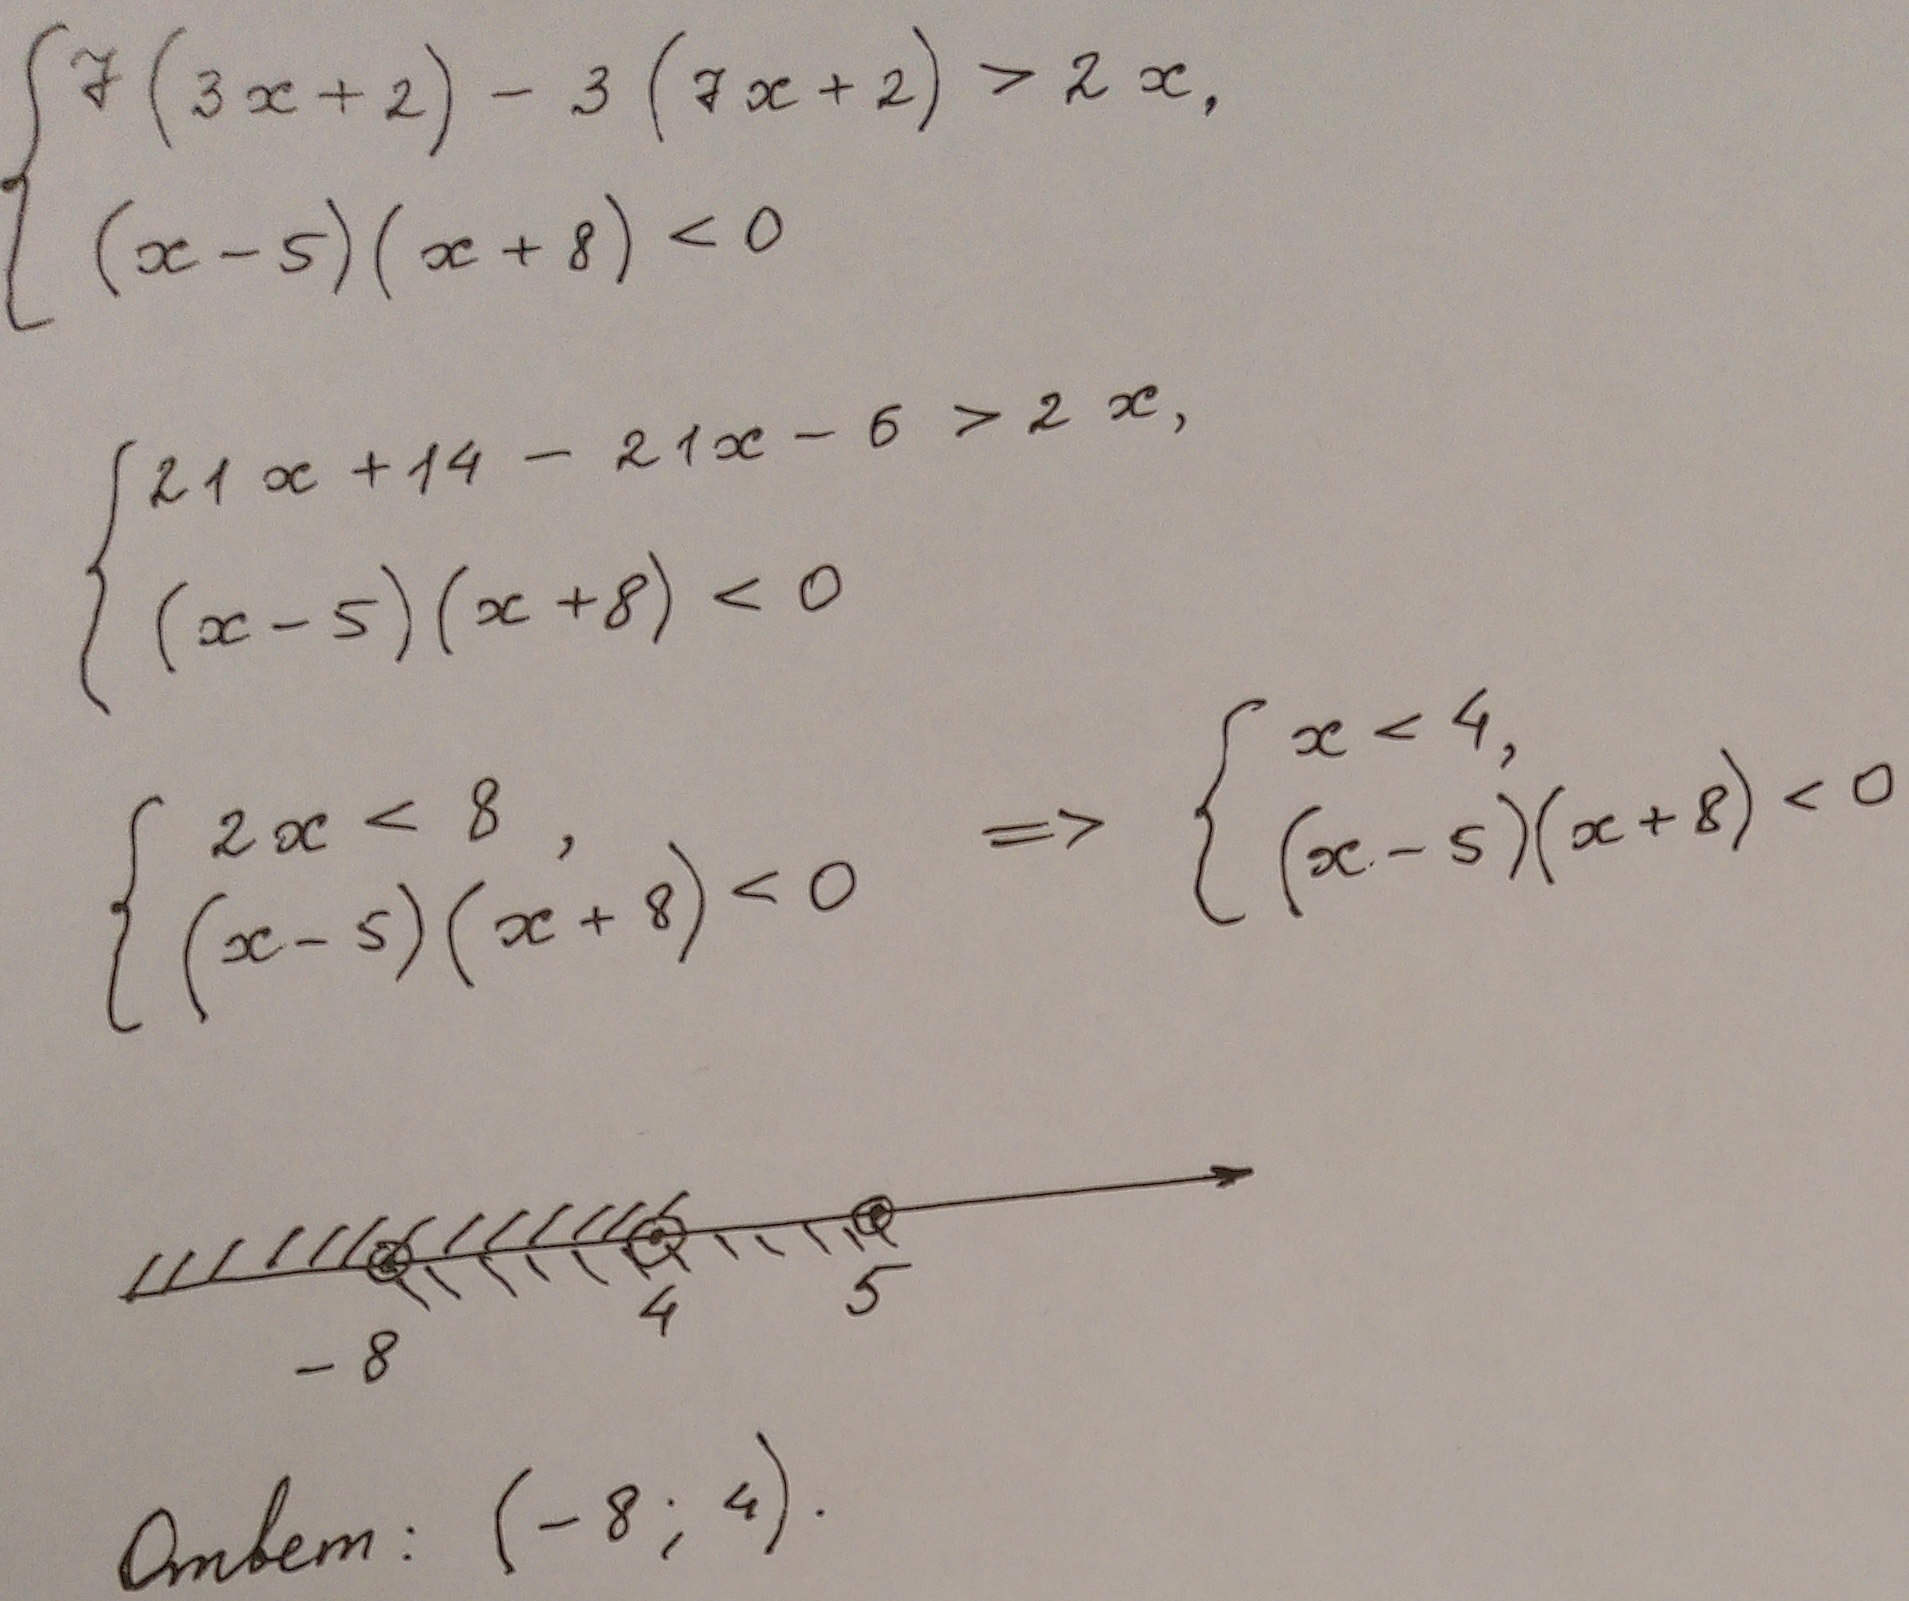 7(3x+2)-3(7x+2)>2x,
(x-5)(x+8)<0
21x+14-21x-6>2x,
(x-5)(x+8)<0
2x<8, => x<4,
(x-5)(x+8)<0 (x-5)(x+8)<0
-8 4 5
Ответ: (-8; 4).